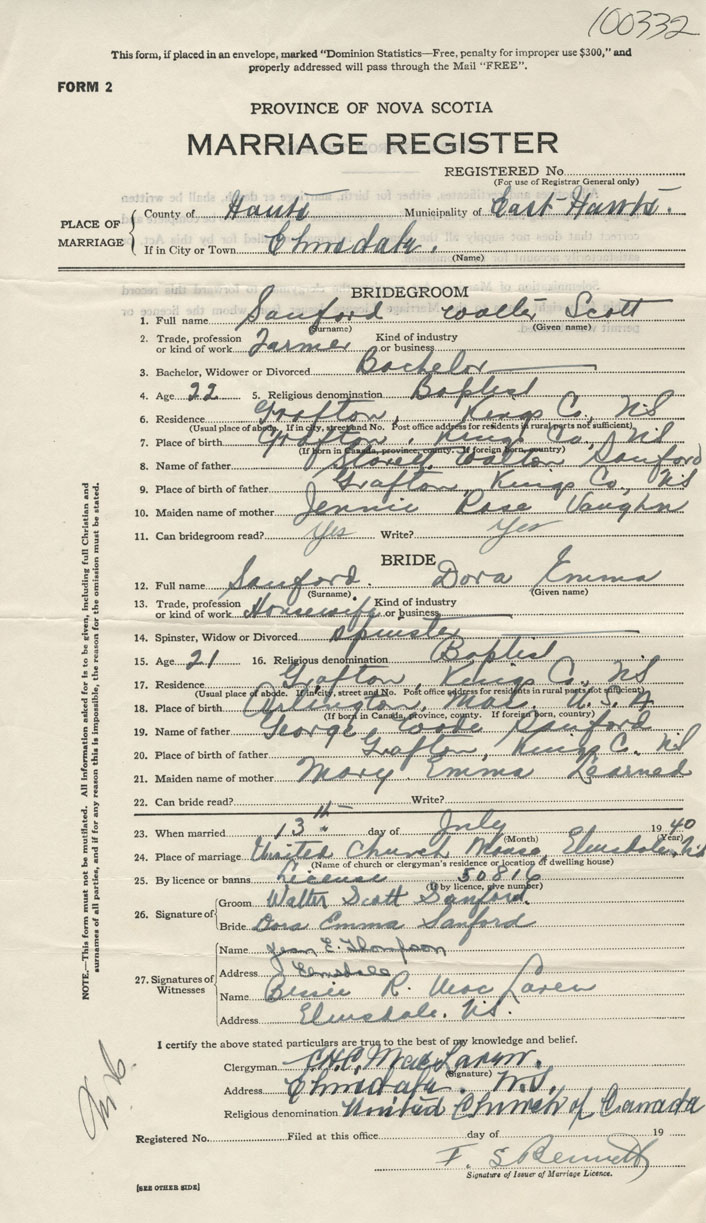 100332
This form, if placed in an envelope, marked "Dominion Statistics—Free, penalty for improper use $300," and
properly addressed will pass through the Mail "FREE".
FORM 2
PROVINCE OF NOVA SCOTIA
MARRIAGE REGISTER
REGISTERED No.
(For use of Registrar General only)
PLACE OF MARRIAGE
County of Hants Municipality of East Hants.
If in City or Town Elmsdale.
(Name)
BRIDEGROOM
1. Full name Sanford Walter Scott
(Surname) (Given name)
2. Trade, profession or kind of work Farmer Kind of industry or business
3. Bachelor, Widower or Divorced Bachelor
4. Age 22 5. Religious denomination Baptist
6. Residence Grafton, Kings Co., NS
(Usual place of abode. If in city, street and No. Post office address for residents in rural parts not sufficient)
7. Place of birth Grafton, Kings Co., NS
(If born in Canada, province, county. If foreign born, country)
8. Name of father Walton Sanford
9. Place of birth of father Grafton, Kings Co., NS
10. Maiden name of mother Jennie Rose Vaughn
11. Can bridegroom read? Yes Write? Yes
BRIDE
12. Full name Sanford. Dora Emma
(Surname) (Given name)
13. Trade, profession or kind of work Housewife Kind of industry or business
14. Spinster, Widow or Divorced Spinster
15. Age 21 16. Religious denomination Baptist
17. Residence Grafton, Kings Co., NS
(Usual place of abode. If in city, street and No. Post office address for residents in rural parts not sufficient)
18. Place of birth Arlington, Mas. U.S.A
(If born in Canada, province, county. If foreign born, country)
19. Name of father George Sanford
20. Place of birth of father Grafton, Kings C. NS
21. Maiden name of mother Mary Emma Learned
22. Can bride read? Write?
23. When married 13th day of July 1940
(Month) (Year)
24. Place of marriage United Church Manse, Elmsdale, NS
(Name of church or clergyman's residence or location of dwelling house)
25. By licence or banns License 50816
(If by licence, give number)
26. Signature of
Groom Walter Scott Sanford.
Bride Dora Emma Sanford
27. Signatures of Witnesses
Name Jean E. Thompson
Address Elmsdale
Name Bessie R. MacLaren
Address Elmsdale. N.S.
I certify the above stated particulars are true to the best of my knowledge and belief.
Clergyman J.H.C. MacLaren.
(Signature)
Address Elmsdale. N.S.
Religious denomination United Church of Canada
Registered No. Filed at this office day of 19
F. S. Bennett
Signature of Issuer of Marriage Licence.
[SEE OTHER SIDE]
NOTE.—This form must not be mutilated. All information asked for is to be given, including full Christian and
surnames of all parties, and if for any reason this is impossible, the reason for the omission must be stated.